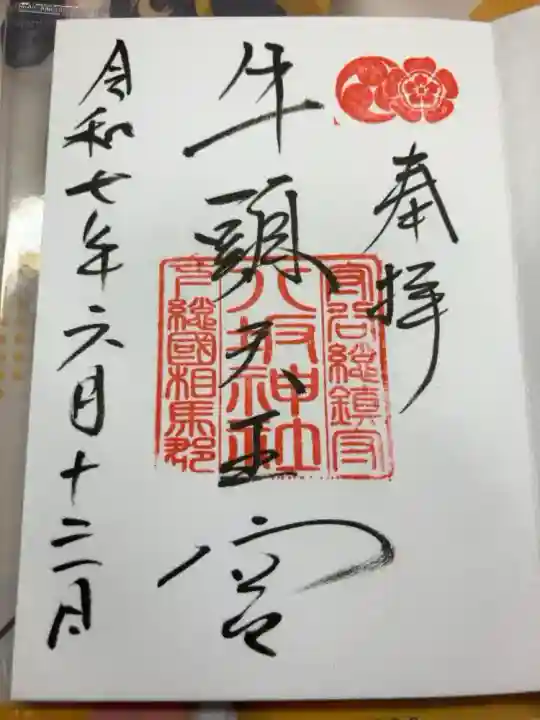 奉拝
守谷總鎮守
牛頭天王宮
八坂神社
下總國相馬郡
令和七年六月十三日